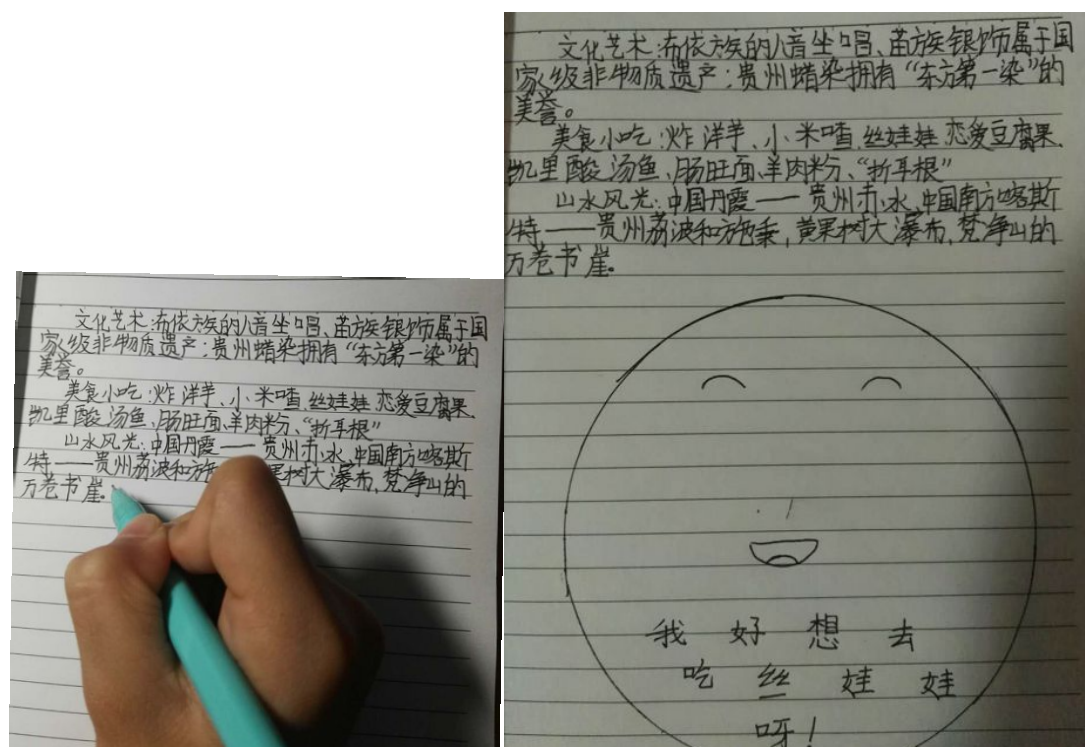 文化艺术:布依族的八音坐唱、苗族银饰属于国
家级非物质遗产;贵州蜡染拥有“东方第一染”的
美誉。
美食小吃:炸洋芋、小米喳、丝娃娃、恋爱豆腐果、
凯里酸汤鱼、肠旺面、羊肉粉、“折耳根”
山水风光:中国丹霞——贵州赤水、中国南方喀斯
特——贵州荔波和施
果树大瀑布、梵净山的
万卷书崖。
文化艺术:布依族的八音坐唱、苗族银饰属于国
家级非物质遗产;贵州蜡染拥有“东方第一染”的
美誉。
美食小吃:炸洋芋、小米喳、丝娃娃、恋爱豆腐果、
凯里酸汤鱼、肠旺面、羊肉粉、“折耳根”
山水风光:中国丹霞——贵州赤水、中国南方喀斯
特——贵州荔波和施秉,黄果树大瀑布、梵净山的
万卷书崖。
我好想去
吃丝娃娃
呀!